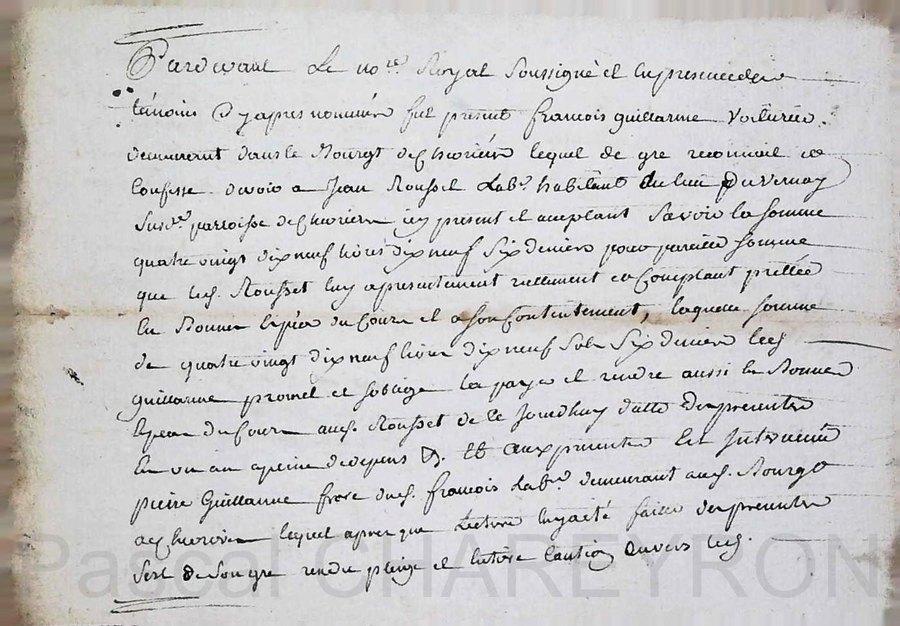 Pardevant Le no.re Royal soussigné et en presence des
témoins Cy apres nommés fut present françois guillarme Voiturier
demeurant dans le Bourgt de lequel de gre reconnait et
Confesse devoir a Jean Rousset Lab.r habitant du lieu Duvernay
Susd.e parroisse de icy present et acceptant Savoir la somme
quatre vingt dix neuf livres dix neuf Six deniers pour pareille somme
que led. Rousset luy a presentement reellement et Comptant prettée
En Bonnes Espéces du Cours et a son Contentement, laquelle somme
de quatre vingt dix neuf livres dix neuf Sols Six deniers led.
guillarme promet et soblige la payer et rendre aussi En Bonnes
Especes du Cours aud. Rousset de ce Jourdhuy datte des presentes
En un an a peine de depens &. Et aux presentes Est Intervenu
pierre Guillarme frere dud. françois Lab.r demeurant aud. Bourgt
lequel apres que Lecture luy a eté faitte des presentes
Sest de son gre rendu plaige et Caution Envers led.
Pascal CHAREYRON